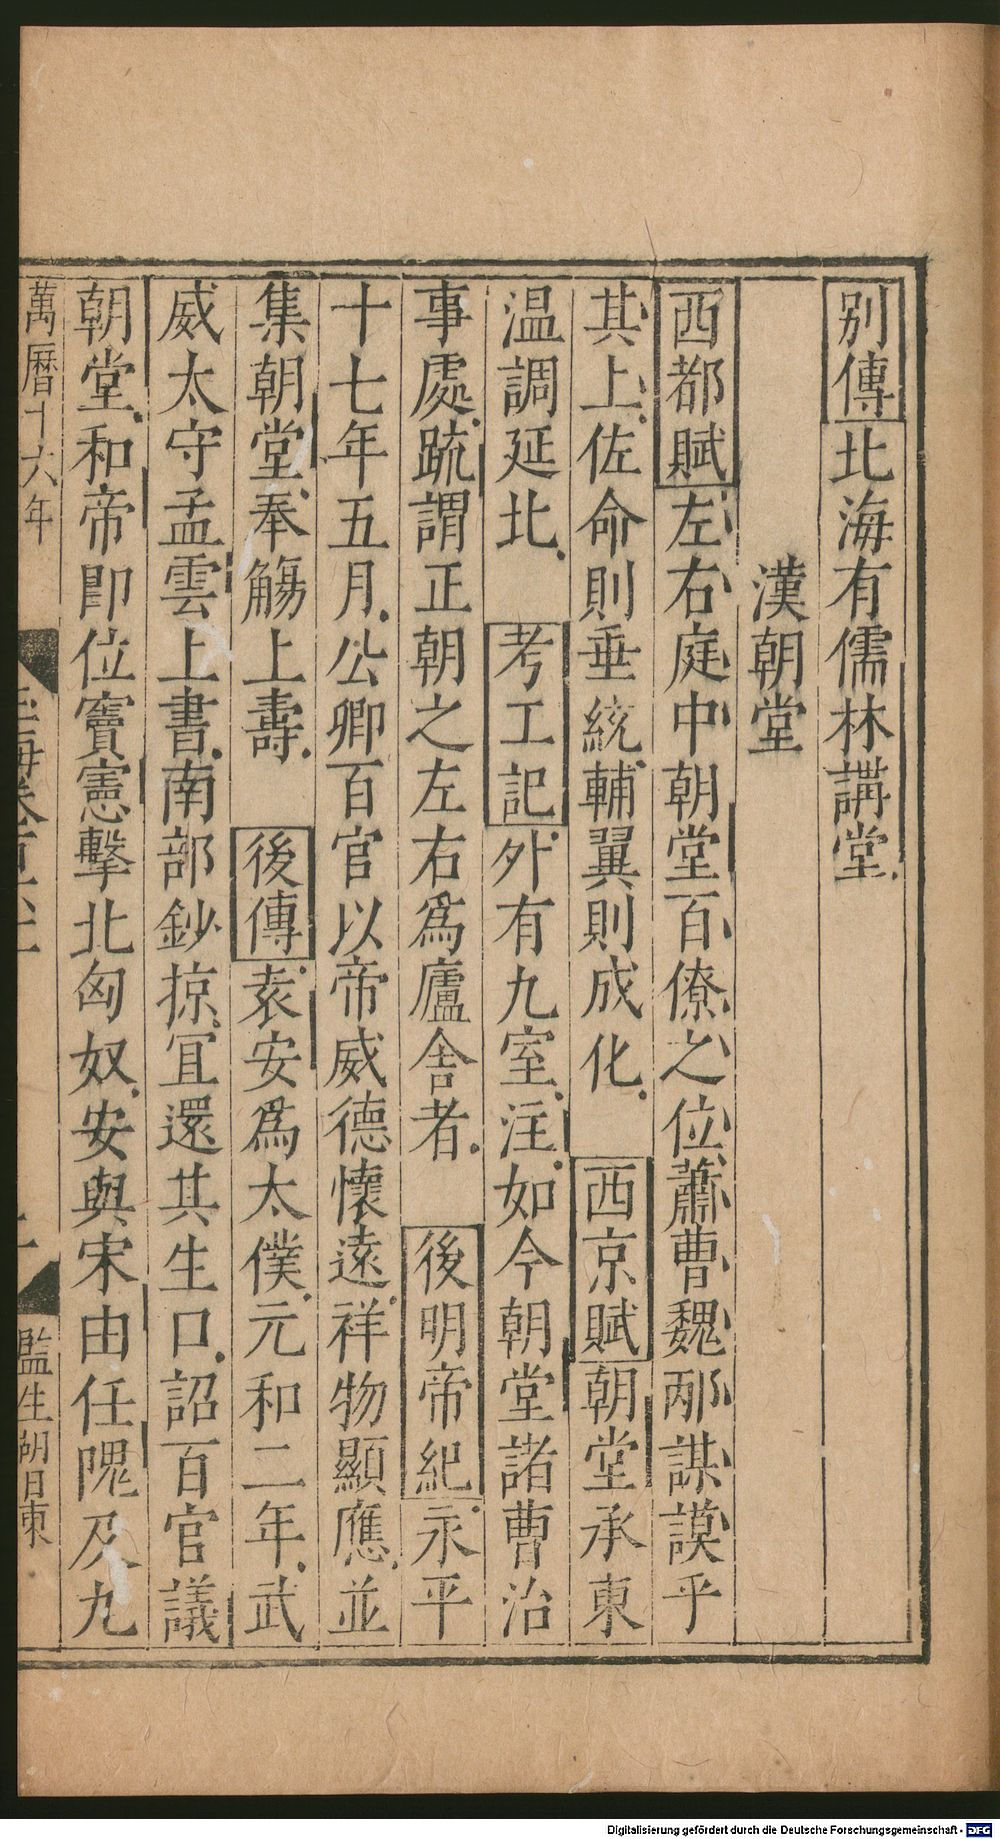 別傳北海有儒林講堂
漢朝堂
西都賦左右庭中朝堂百僚之位蕭曹魏邴謀謨乎
其上佐命則垂統輔翼則成化　西京賦朝堂承東
温調延北　考工記外有九室注如今朝堂諸曹治
事處疏謂正朝之左右爲廬舍者　後明帝紀永平
十七年五月公卿百官以帝威德懷遠祥物顯應並
集朝堂奉觴上壽　後傳袁安爲太僕元和二年武
威太守孟雲上書南部鈔掠冝還其生口詔百官議
朝堂和帝卽位竇憲擊北匈奴安與宋由任隗及九
萬曆十六年
監生胡日東
Digitalisierung gefördert durch die Deutsche Forschungsgemeinschaft - DFG